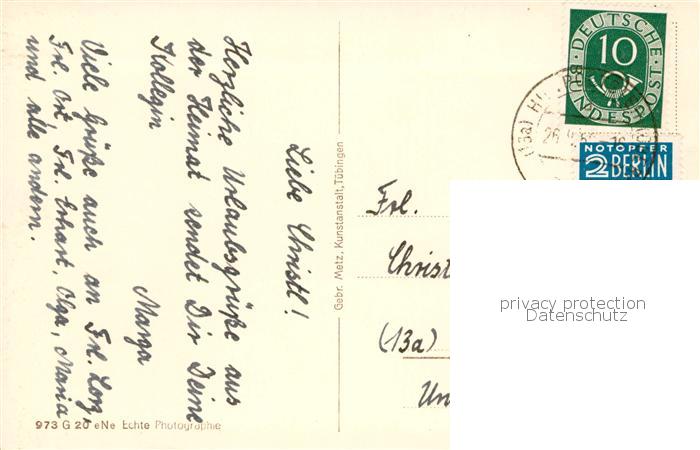 Liebe Christl!
Herzliche Urlaubsgrüße aus
der Heimat sendet Dir Deine
Kollegin
Marga
Viele Grüße auch an Frl. Lonz,
Frl. Ort, Frl. Erhart, Olga, Maria
und alle andern.
973 G 20 eNe Echte Photographie
Gebr. Metz, Kunstanstalt, Tübingen
DEUTSCHE
BUNDESPOST
10
(13a)
NOTOPFER
2 BERLIN
Frl.
Christ
(13a)
Un
privacy protection
Datenschutz